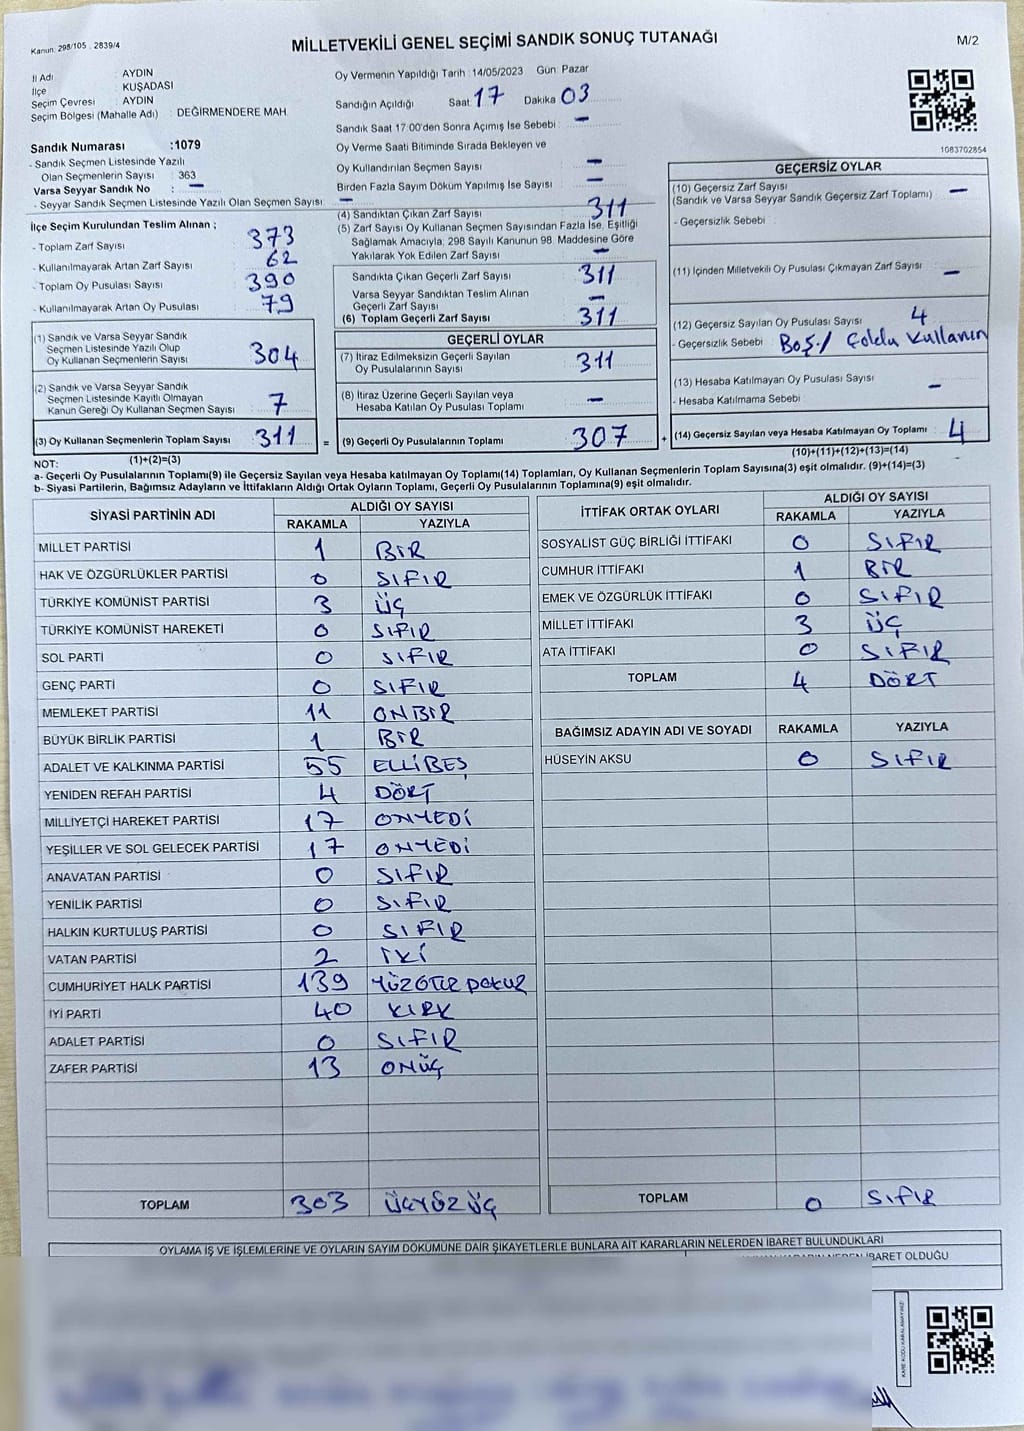 Kanun. 298/105 . 2839/4
MİLLETVEKİLİ GENEL SEÇİMİ SANDIK SONUÇ TUTANAĞI
M/2
İl Adı : AYDIN
İlçe : KUŞADASI
Seçim Çevresi : AYDIN
Seçim Bölgesi (Mahalle Adı) : DEĞİRMENDERE MAH
Sandık Numarası :1079
- Sandık Seçmen Listesinde Yazılı
Olan Seçmenlerin Sayısı : 363
Varsa Seyyar Sandık No : -
- Seyyar Sandık Seçmen Listesinde Yazılı Olan Seçmen Sayısı: -
Oy Vermenin Yapıldığı Tarih : 14/05/2023 Gün: Pazar
Sandığın Açıldığı Saat: 17 Dakika: 03
Sandık Saat 17:00'den Sonra Açılmış İse Sebebi : -
Oy Verme Saati Bitiminde Sırada Bekleyen ve
Oy Kullandırılan Seçmen Sayısı : -
Birden Fazla Sayım Döküm Yapılmış İse Sayısı : -
1083702854
İlçe Seçim Kurulundan Teslim Alınan ;
- Toplam Zarf Sayısı : 373
- Kullanılmayarak Artan Zarf Sayısı : 62
- Toplam Oy Pusulası Sayısı : 390
- Kullanılmayarak Artan Oy Pusulası : 79
(1) Sandık ve Varsa Seyyar Sandık
Seçmen Listesinde Yazılı Olup
Oy Kullanan Seçmenlerin Sayısı : 304
(2) Sandık ve Varsa Seyyar Sandık
Seçmen Listesinde Kayıtlı Olmayan
Kanun Gereği Oy Kullanan Seçmen Sayısı : 7
(3) Oy Kullanan Seçmenlerin Toplam Sayısı : 311
(1)+(2)=(3)
(4) Sandıktan Çıkan Zarf Sayısı : 311
(5) Zarf Sayısı Oy Kullanan Seçmen Sayısından Fazla İse, Eşitliği
Sağlamak Amacıyla; 298 Sayılı Kanunun 98. Maddesine Göre
Yakılarak Yok Edilen Zarf Sayısı : -
Sandıkta Çıkan Geçerli Zarf Sayısı : 311
Varsa Seyyar Sandıktan Teslim Alınan
Geçerli Zarf Sayısı : -
(6) Toplam Geçerli Zarf Sayısı : 311
GEÇERLİ OYLAR
(7) İtiraz Edilmeksizin Geçerli Sayılan
Oy Pusulalarının Sayısı : 311
(8) İtiraz Üzerine Geçerli Sayılan veya
Hesaba Katılan Oy Pusulası Toplamı : -
= (9) Geçerli Oy Pusulalarının Toplamı : 307
GEÇERSİZ OYLAR
(10) Geçersiz Zarf Sayısı : -
(Sandık ve Varsa Seyyar Sandık Geçersiz Zarf Toplamı)
- Geçersizlik Sebebi :
(11) İçinden Milletvekili Oy Pusulası Çıkmayan Zarf Sayısı : -
(12) Geçersiz Sayılan Oy Pusulası Sayısı : 4
- Geçersizlik Sebebi : BOŞ /
(13) Hesaba Katılmayan Oy Pusulası Sayısı : -
- Hesaba Katılmama Sebebi :
+ (14) Geçersiz Sayılan veya Hesaba Katılmayan Oy Toplamı : 4
(10)+(11)+(12)+(13)=(14)
NOT:
a- Geçerli Oy Pusulalarının Toplamı(9) ile Geçersiz Sayılan veya Hesaba katılmayan Oy Toplamı(14) Toplamları, Oy Kullanan Seçmenlerin Toplam Sayısına(3) eşit olmalıdır. (9)+(14)=(3)
b- Siyasi Partilerin, Bağımsız Adayların ve İttifakların Aldığı Ortak Oyların Toplamı, Geçerli Oy Pusulalarının Toplamına(9) eşit olmalıdır.
SİYASİ PARTİNİN ADI ALDIĞI OY SAYISI
RAKAMLA YAZIYLA
MİLLET PARTİSİ 1 BİR
HAK VE ÖZGÜRLÜKLER PARTİSİ 0 SIFIR
TÜRKİYE KOMÜNİST PARTİSİ 3 ÜÇ
TÜRKİYE KOMÜNİST HAREKETİ 0 SIFIR
SOL PARTİ 0 SIFIR
GENÇ PARTİ 0 SIFIR
MEMLEKET PARTİSİ 11 ONBİR
BÜYÜK BİRLİK PARTİSİ 1 BİR
ADALET VE KALKINMA PARTİSİ 55 ELLİBEŞ
YENİDEN REFAH PARTİSİ 4 DÖRT
MİLLİYETÇİ HAREKET PARTİSİ 17 ONYEDİ
YEŞİLLER VE SOL GELECEK PARTİSİ 17 ONYEDİ
ANAVATAN PARTİSİ 0 SIFIR
YENİLİK PARTİSİ 0 SIFIR
HALKIN KURTULUŞ PARTİSİ 0 SIFIR
VATAN PARTİSİ 2 İKİ
CUMHURİYET HALK PARTİSİ 139 YÜZOTUZ DOKUZ
İYİ PARTİ 40 KIRK
ADALET PARTİSİ 0 SIFIR
ZAFER PARTİSİ 13 ONÜÇ
TOPLAM 303 ÜÇYÜZ ÜÇ
İTTİFAK ORTAK OYLARI ALDIĞI OY SAYISI
RAKAMLA YAZIYLA
SOSYALİST GÜÇ BİRLİĞİ İTTİFAKI 0 SIFIR
CUMHUR İTTİFAKI 1 BİR
EMEK VE ÖZGÜRLÜK İTTİFAKI 0 SIFIR
MİLLET İTTİFAKI 3 ÜÇ
ATA İTTİFAKI 0 SIFIR
TOPLAM 4 DÖRT
BAĞIMSIZ ADAYIN ADI VE SOYADI RAKAMLA YAZIYLA
HÜSEYİN AKSU 0 SIFIR
TOPLAM 0 SIFIR
OYLAMA İŞ VE İŞLEMLERİNE VE OYLARIN SAYIM DÖKÜMÜNE DAİR ŞİKAYETLERLE BUNLARA AİT KARARLARIN NELERDEN İBARET BULUNDUKLARI
İBARET OLDUĞU
KARE KODU KARALAMAYINIZ!